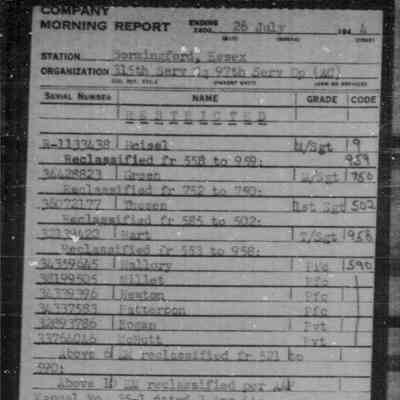 COMPANY
MORNING REPORT ENDING 26 July 194 4
STATION Bormingford, Essex
ORGANIZATION 315th Serv Sq 97th Serv Gp (AC)
SERIAL NUMBER NAME GRADE CODE
RESTRICTED
R-1133438 Heisel M/Sgt 9
Reclassified fr 558 to 959: 959
36428823 Green M/Sgt 750
Reclassified fr 752 to 750:
36072177 Thosen 1st Sgt 502
Reclassified fr 585 to 502:
32139420 Hart T/Sgt 958
Reclassified fr 553 to 958:
34359645 Mallory Pfc 590
38199505 Millet Pfc
34339396 Newton Pfc
34337583 Patterson Pfc
32693786 Rogan Pvt
33766046 McNutt Pvt
Above 6 EM reclassified fr 521 to
590:
Above 10 EM reclassified per AAF
No. 35-1 dated